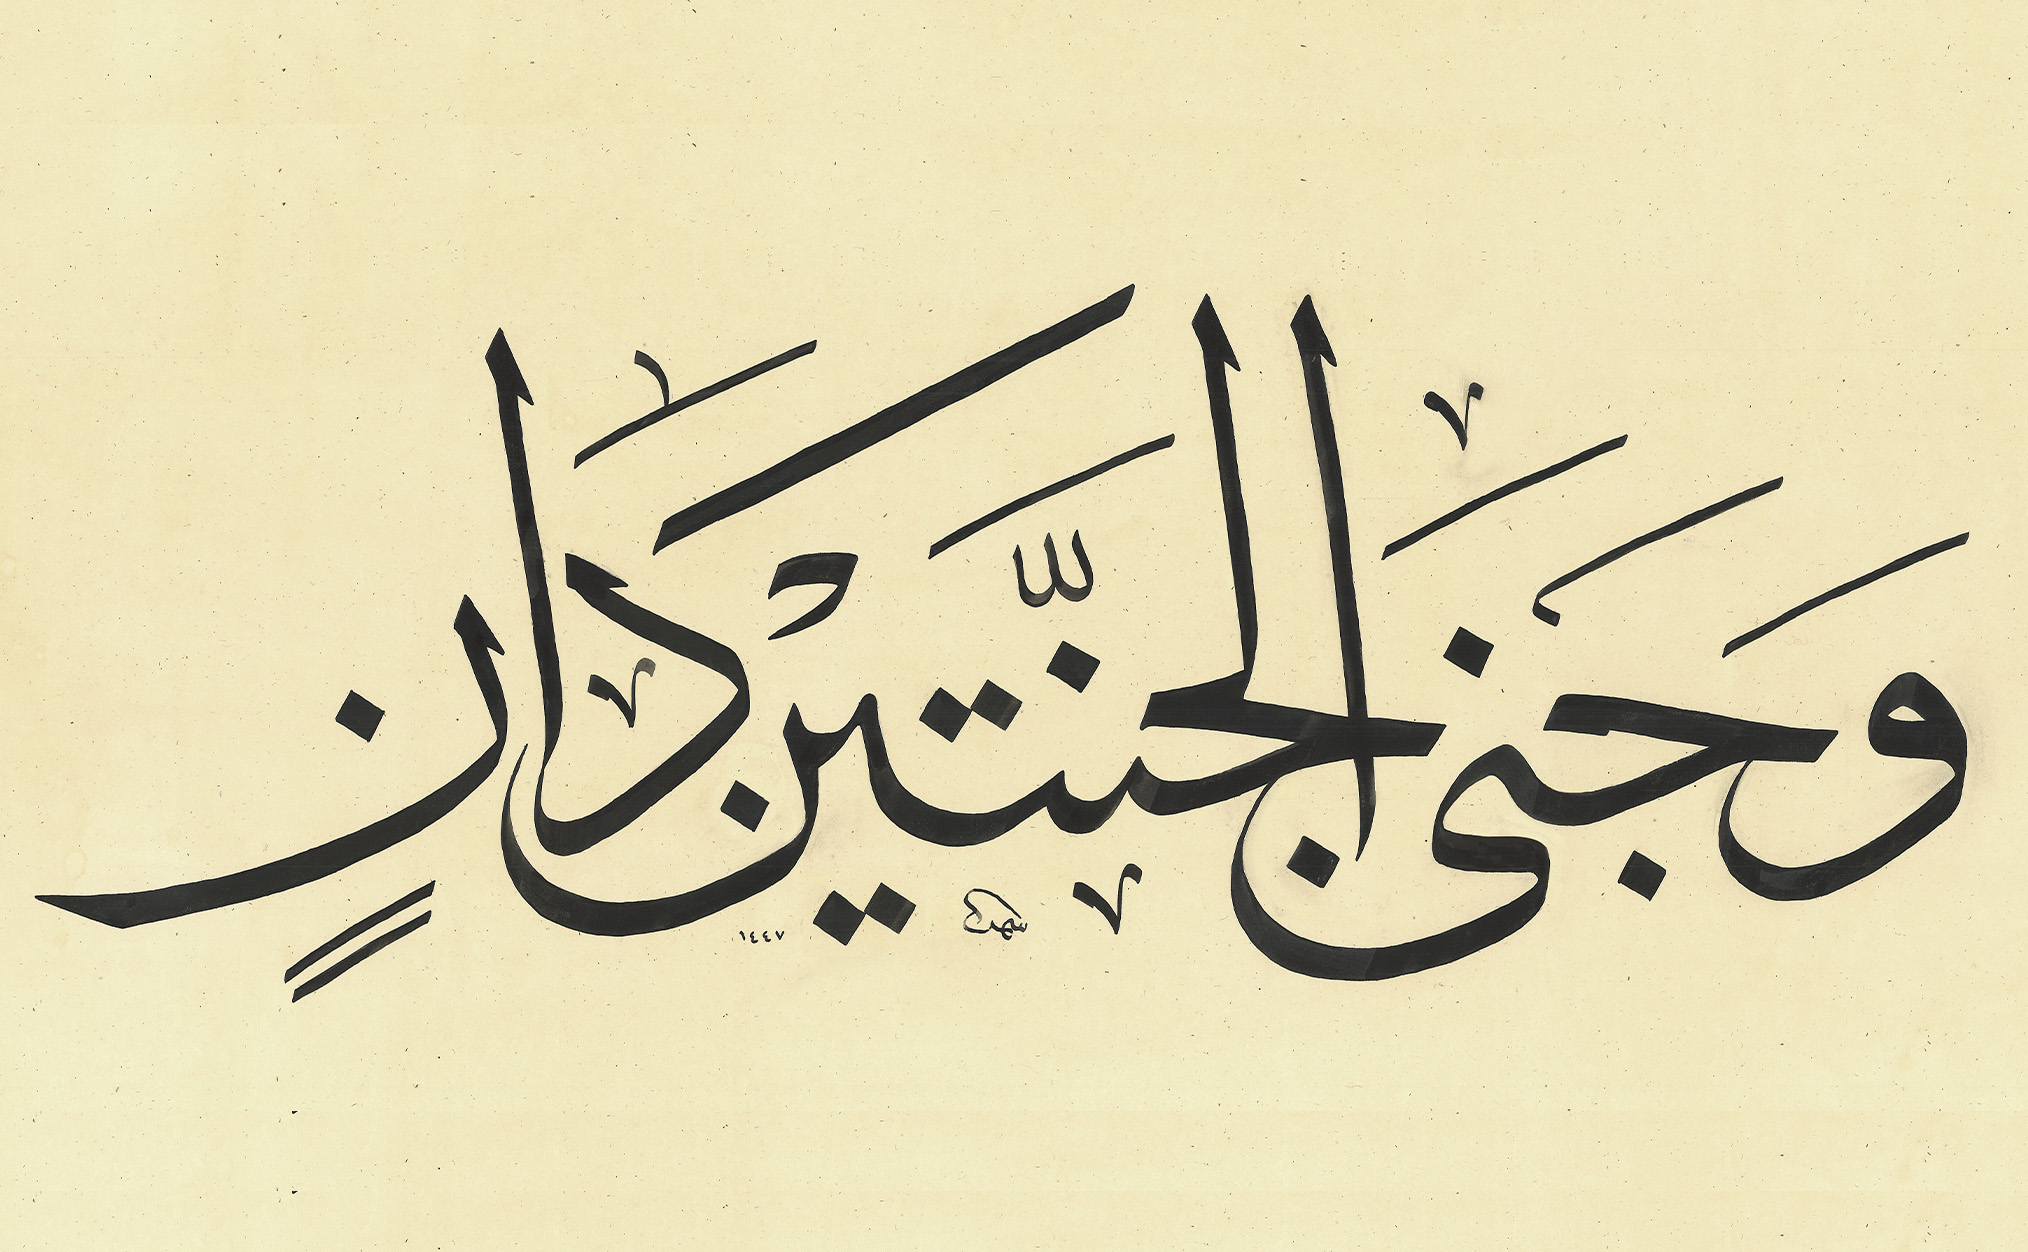 وَجَنَى الجَنَّتَيْنِ دَانٍ
١٤٤٧